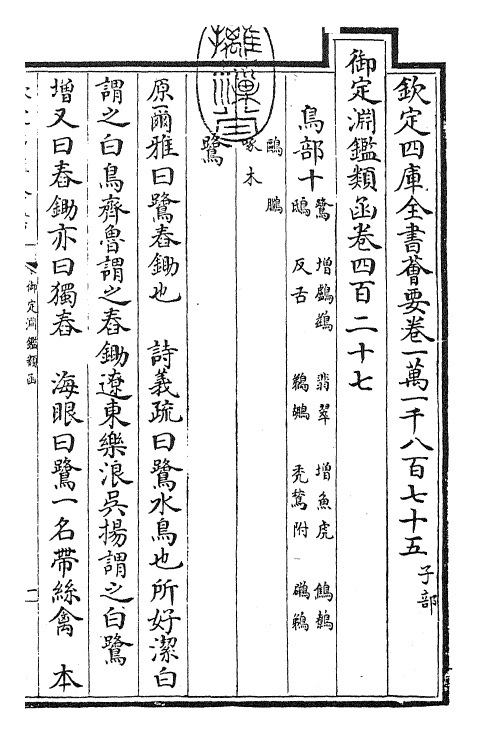 欽定四庫全書薈要卷一萬一千八百七十五 子部
御定淵鑑類函卷四百二十七
鳥部十
鷺 增鸕鷀 翡翠 增魚虎
鴟 反舌 鵜鶘 禿鶖附
鵬
啄木
鷺
原爾雅曰鷺舂鋤也 詩義疏曰鷺水鳥也所好潔白
謂之白鳥齊魯謂之舂鋤遼東樂浪吳揚謂之白鷺
增又曰舂鋤亦曰獨舂 海眼曰鷺一名帶絲禽 本
御定淵鑑類函
一